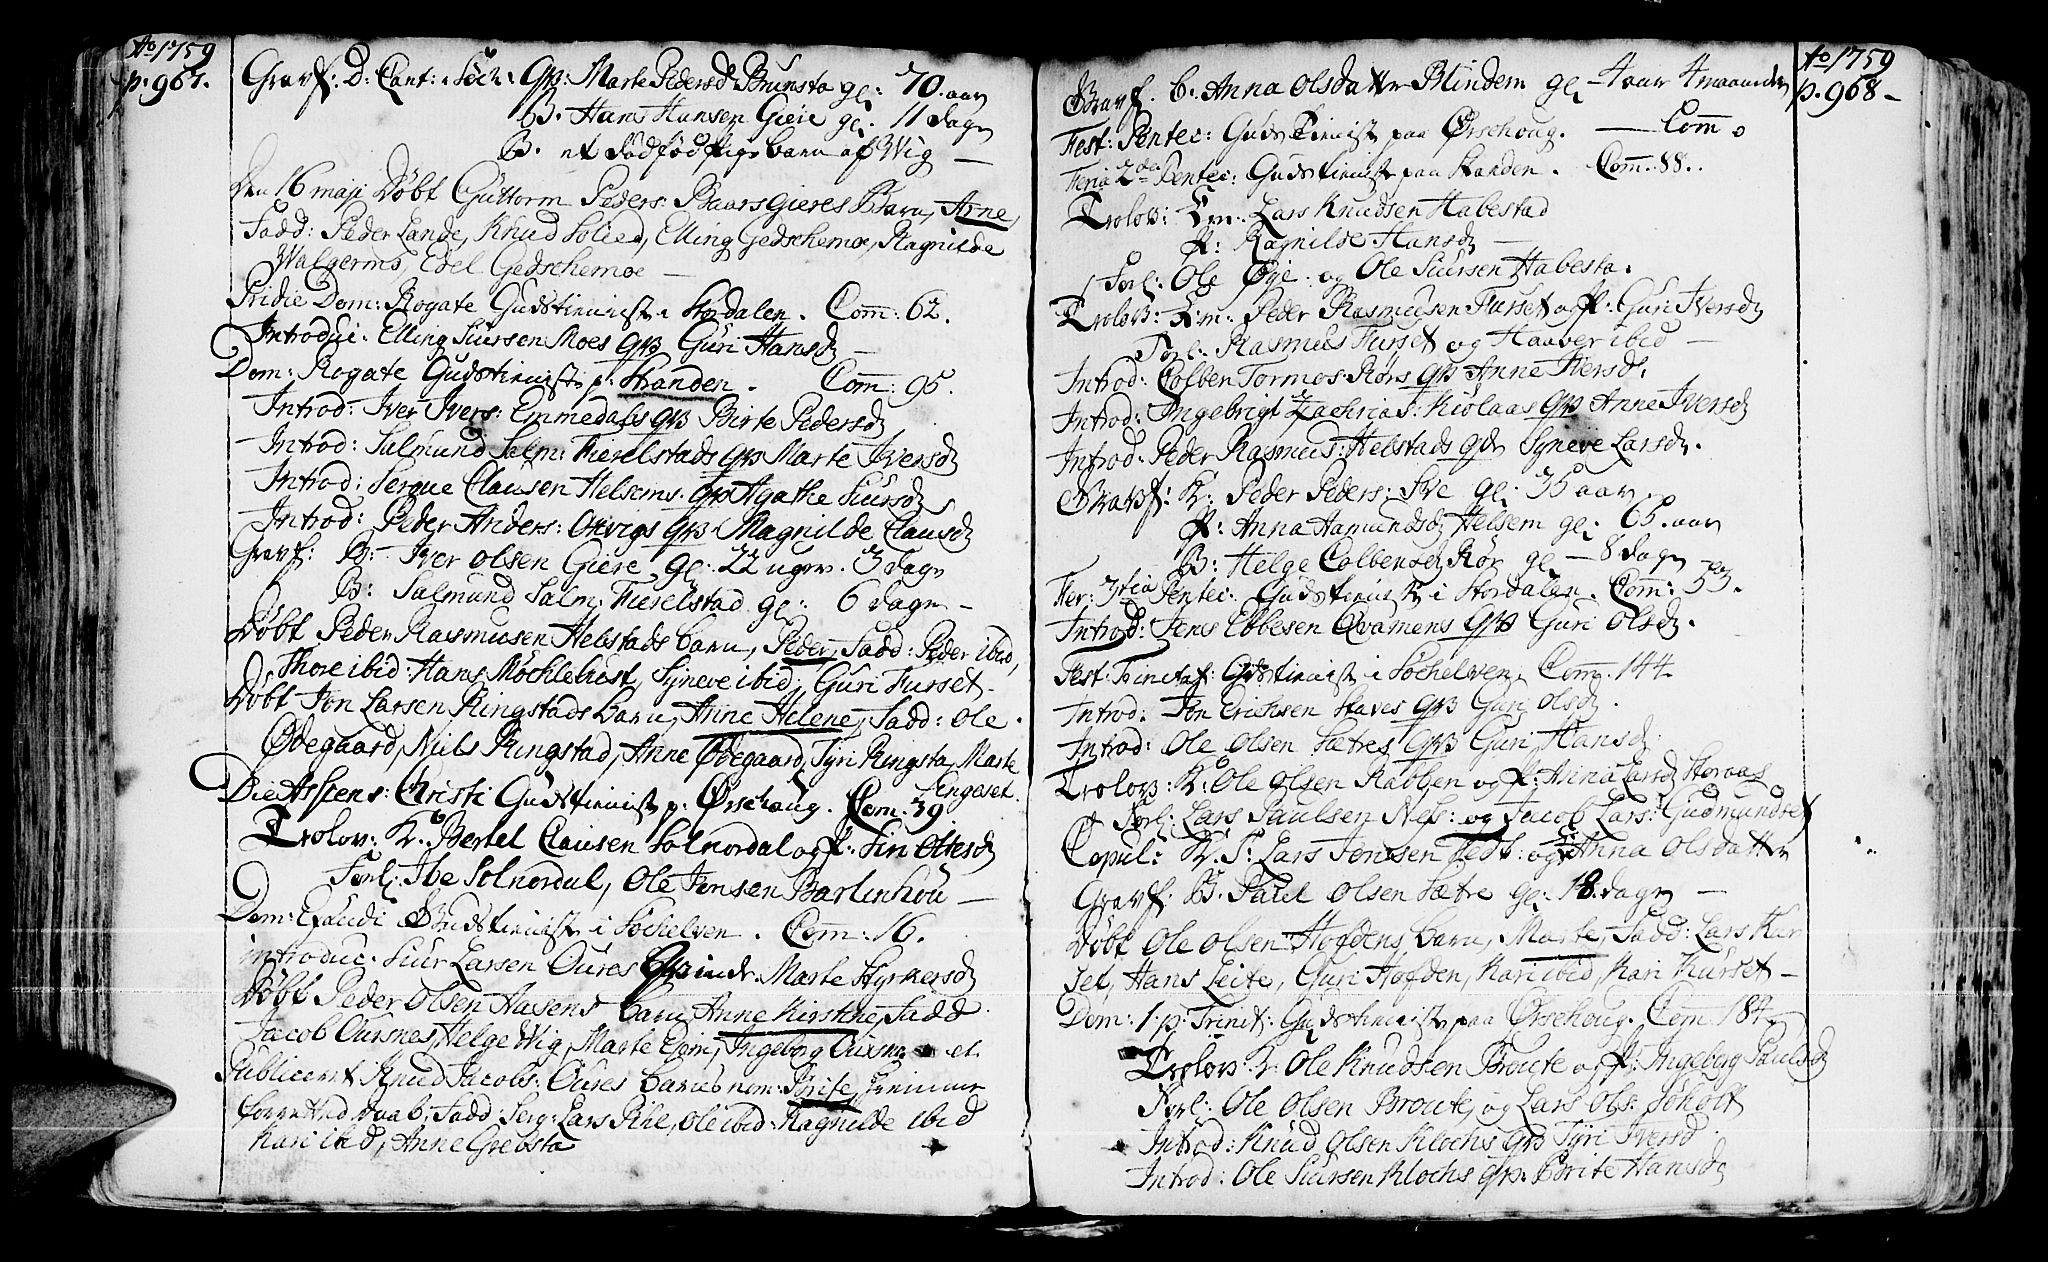 Ao 1759
p. 967.
Gravf: D: Cant: i Søch: QvB: Marte Pedersd Brunsta gl: 70. aar
B. Hans Hansen Gieie gl. 11 dage
B. et dødfødt Pige barn af Wig —
Den 16 maji Døbt Guttorm Peders: Baarsgieres Barn, Arne,
Fadd: Peder Lande, Knud Solied, Elling Gedschemoe, Ragnilde
Walgermo, Edel Gedschemoe —
Pridie Dom: Rogate Gudstienist i Stordalen. Com: 62.
Introduc: Elling Siursen Moes QvB Guri Hansd —
Dom: Rogate Gudstienist p: Stranden. Com: 95.
Introd: Iver Ivers: Emmedals QvB Birte Pedersd
Introd: Salmund Salm: Fieelstads QvB Marte Iversd
Introd: Serque Clausen Helsems QvB Agathe Siursd
Introd: Peder Anders: Overvigs QvB Magnilde Clausd
Gravf: B: Iver Olsen Giere gl. 22 uger. 3 dage
B: Salmund Salm: Fieelstad gl: 6 dage —
Døbt Peder Rasmusen Helstads barn, Peder, Fadd: Peder ibid,
Thore ibid: Hans Mochlebust, Syneve ibid, Guri Furset —
Døbt Jon Larsen Ringstads barn, Anne Helene, Fadd: Ole
Ødegaard, Niels Ringstad, Anne Ødegaard, Tyri Ringsta, Marte
Engeset.
Die Assens: Christi Gudstienist p: Ørschoug. Com. 39.
Trolov: K. Bertel Clausen Solnordal og P: Siri Oltesd
Forl: Ibe Solnordal, Ole Jensen Barlinhou —
Dom: Exaudi Gudstienist i Søchelven. Com: 16.
introduc. Siur Larsen Oures Qvinde Marte Styrkersd
Døbt Peder Olsen Aasens barn Anne Kirstine, Fadd
Jacob Oursnes, Helge Wig, Marte Eem, Ingeborg
Publiceret Knud Jacobs: Oures barneb nom: Brite, hiemme
forrettned daab: Fadd: Serg: Lars Rihe, Ole ibid: Ragnilde ibid
Kari ibid, Anne Grebsta
Ao 1759
p. 968 —
Gravf. B. Anna Olsdatter Blindem gl 4 aar 4 maaneder
Fest: Pentec: Guds Tienist paa Ørschoug. — Com 0
Feria 2da Pentec: Gudstienist paa Standen. Com. 88.
Trolov: Em: Lars Knudsen Habestad
P: Ragnilde Hansd —
Forl: Ole Øye og Ole Siursen Habesta.
Trolov: E:m: Peder Rasmusen Furset og P: Guri Iversd
Forl: Rasmus Furset og Haaver ibid —
Introd: Colben Tormos Rørs QvB Anne Hersd.
Introd: Ingebrigt Zachrias: Kiolaas QvB Anne Iversd
Introd: Peder Rasmus: Helstads QvB Syneve Larsd.
Gravf: K: Peder Peders: Sve gl: 75 aar
P: Anna Aamundsd Helsem gl. 65. aar
B: Helge Colbensd Rør gl — 8 dage
Fer: 3tia Pentec: Gudstienist i Stordalen. Com: 53.
Introd: Jens Ebbesen Qvamens QvB Guri Olsd.
Fest: Trinitat: Gudstienist i Søchelven. Com. 144.
Introd: Jon Erichsen Staves QvB Guri Olsd.
Introd: Ole Olsen Sætres QvB Guri Hansd.
Trolov: K: Ole Olsen Rabben og P: Anna Larsd Storaas
Forl: Lars Paulsen Nes: og Jacob Lars: Gudmundset
Copul: K. S: Lars Jensen og Anna Olsdatter
Gravf. B. Paul Olsen Sætre gl. 18. dage —
Døbt Ole Olsen Hofdens barn, Marte, Fadd: Lars Kur
set, Hans Leite, Guri Hofden, Kari ibid, Kari Kurset —
Dom: 1. p: Trinit: Gudstienist paa Ørschoug. Com: 184.
Trolov. K: Ole Knudsen Broute og P: Ingeborg Paulsd
Forl: Ole Olsen Broute, og Lars Ols: Søholt
Introd: Knud Olsen Klochs QvB Tyri Iversd.
Introd: Ole Siursen Klochs QvB: Brite Hansd